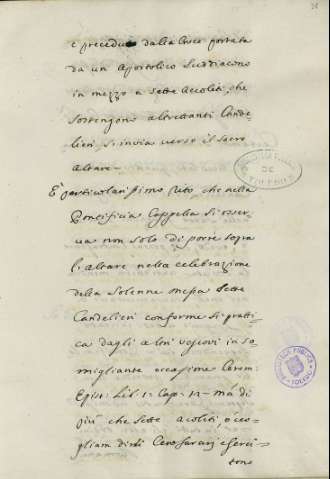 e precedu dalla Croce portata
da un Apostolico Suddiacono
in mezzo a Sette Accoliti, che
sostengono altrettanti Cande-
lieri, s'invia verso il sacro
altare -
È particolarissimo Rito, che nella
Pontificia Cappella si osser-
va non solo di porre sopra
l'Altare nella celebrazione
della Solenne messa Sette
Candelieri conforme si pratti-
ca dagli altri vescovi in so-
migliante occasione Cerem:
Epis: Lib: 1: Cap: 12 - mà di
più che Sette acoliti, ò vo-
gliam dirli Ceroferarij eserci-
tono